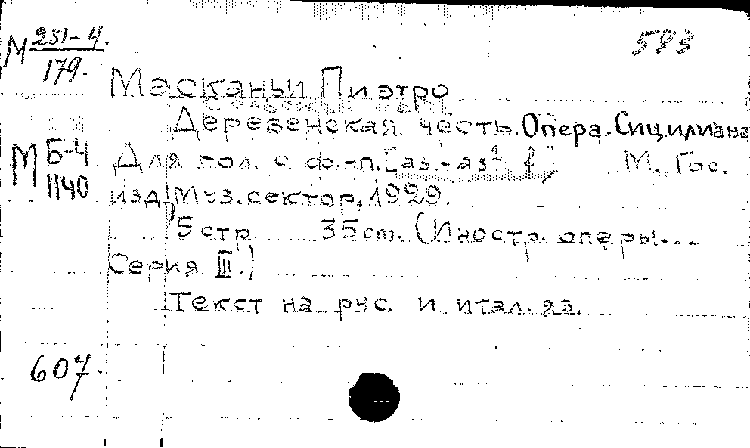 М 251-4/179.
583
Масканьи Пиэтро
Деревенская честь. Опера. Сицилиана
М Б-4/1140
Для гол. с ф.-п. М. Гос.
изд. Муз. сектор, 1929.
5 стр 35 cm. (Иностр. оперы...
Серия III.)
Текст на рус. и итал. яз.
607.